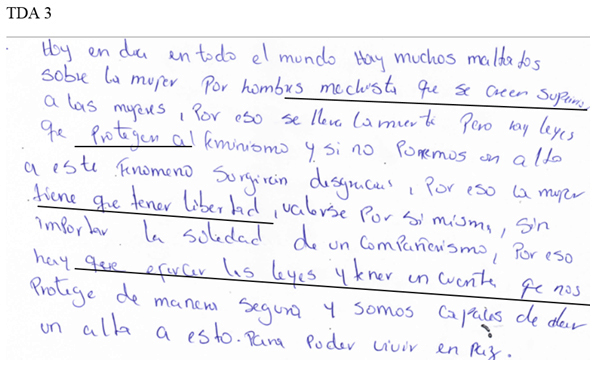 TDA 3
Hoy en dia en todo el mundo Hay muchos maltatos
sobre la mujer Por hombres mechista que se creen superior
a las mujeres, Por eso se lleva La muerte Pero hay leyes
que Protegen al feminismo y si no Ponemos un alto
a este Fenomeno Surgirán desgracias, Por eso La mujer
tiene que tener libertad, valerse Por si misma, Sin
importar la soledad de un Compañerismo, Por eso
hay que ejercer las leyes y tener en cuenta que nos
Protege de manera segura y somos capases de dar
un alta a esto. Para Poder vivir en Paz.